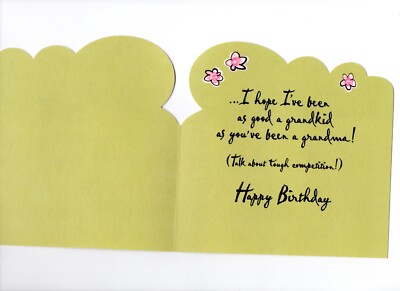 ...I hope I've been
as good a grandkid
as you've been a grandma!
(Talk about tough competition!)
Happy Birthday